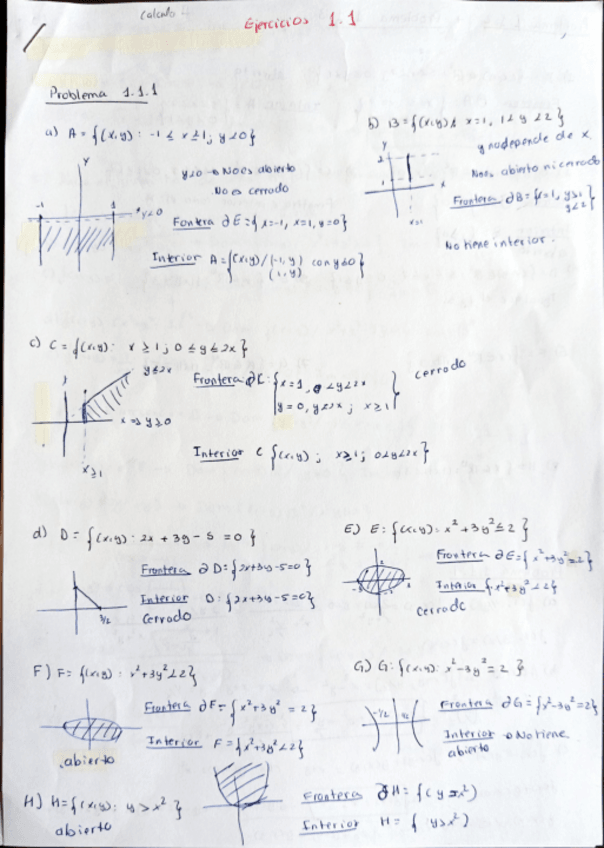 Calculo 4
Ejercicios 1.1
Problema 1.1.1
a) A = {(x,y): -1 ≤ x ≤ 1; y<0}
y<0 → No es abierto
No es cerrado
-1
1
y
y<0
Fontera ∂E = {x=-1, x=1, y=0}
Interior A = {(x,y)/(-1,y) con y<0}
(1,y)
b) B = {(x,y): x=1, 1<y<2}
y no depende de x
y
2
1
x
x=1
No es abierto ni cerrado
Frontera ∂B = {x=1, y≥1
y≤2}
No tiene interior.
c) C = {(x,y): x ≥ 1; 0 ≤ y ≤ 2x}
y≤2x
x ⇒ y≥0
x≥1
Frontera ∂C: {x=1, 0<y<2x
y=0, y=2x; x≥1}
cerrado
Interior C {(x,y); x≥1; 0<y<2x}
d) D = {(x,y): 2x + 3y - 5 = 0}
Frontera ∂D = {2x+3y-5=0}
Interior D: {2x+3y-5=0}
cerrado
E) E: {(x,y): x²+3y² ≤ 2}
Frontera ∂E = {x²+3y²=2}
Interior {x²+3y²<2}
cerrado
F) F = {(x,y): x²+3y²<2}
Frontera ∂F = {x²+3y² = 2}
Interior F = {x²+3y²<2}
abierto
G) G: {(x,y): x²-3y² = 2}
Frontera ∂G = {x²-3y²=2}
Interior → No tiene
abierto
H) H = {(x,y): y > x²}
abierto
Frontera ∂H = {(y = x²)
Interior H = { y>x²)